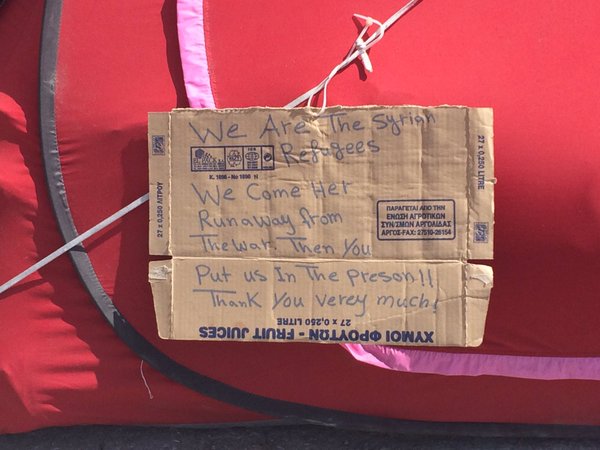 We Are The Syrian
Refugees
K. 1696 - No 1696 H
We Come Her
Runaway from
The war. Then You
Put us In The preson!!
Thank You verey much!
27 x 0,250 ΛΙΤΡΟΥ
27 x 0,250 LITRE
ΠΑΡΑΓΕΤΑΙ ΑΠΟ ΤΗΝ
ΕΝΩΣΗ ΑΓΡΟΤΙΚΩΝ
ΣΥΝ/ΣΜΩΝ ΑΡΓΟΛΙΔΑΣ
ΑΡΓΟΣ-FAX: 27510-26154
ΧΥΜΟΙ ΦΡΟΥΤΩΝ - FRUIT JUICES
27 x 0,250 LITRE